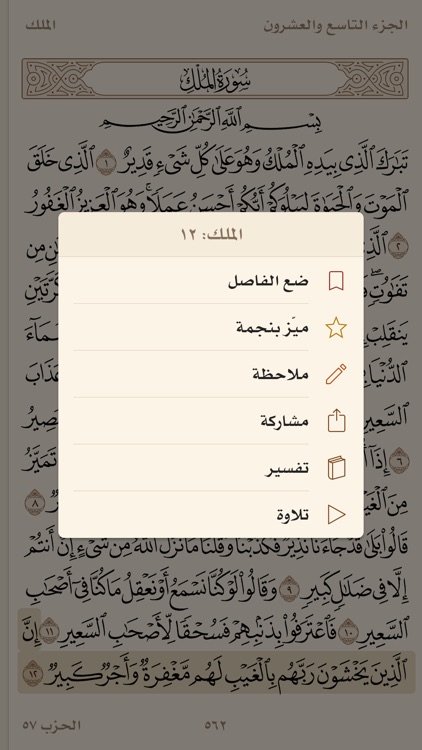 الجزء التاسع والعشرون الملك
سُورَةُ الْمُلْكِ
بِسْمِ ٱللَّهِ ٱلرَّحْمَٰنِ ٱلرَّحِيمِ
تَبَٰرَكَ ٱلَّذِى بِيَدِهِ ٱلْمُلْكُ وَهُوَ عَلَىٰ كُلِّ شَىْءٍ قَدِيرٌ ١ ٱلَّذِى خَلَقَ
ٱلْمَوْتَ وَٱلْحَيَوٰةَ لِيَبْلُوَكُمْ أَيُّكُمْ أَحْسَنُ عَمَلًا ۚ وَهُوَ ٱلْعَزِيزُ ٱلْغَفُورُ
٢ مِن
تَفَٰوُتٍ ۖ كَرَّتَيْنِ
يَنقَلِبْ
ٱلدُّنْيَا عَذَابَ
ٱلسَّعِيرِ
٦ إِذَآ تَمَيَّزُ
مِنَ ٨
الملك: ١٢
ضع الفاصل
ميّز بنجمة
ملاحظة
مشاركة
تفسير
تلاوة
قَالُوا۟ بَلَىٰ قَدْ جَآءَنَا نَذِيرٌ فَكَذَّبْنَا وَقُلْنَا مَا نَزَّلَ ٱللَّهُ مِن شَىْءٍ إِنْ أَنتُمْ
إِلَّا فِى ضَلَٰلٍ كَبِيرٍ ٩ وَقَالُوا۟ لَوْ كُنَّا نَسْمَعُ أَوْ نَعْقِلُ مَا كُنَّا فِىٓ أَصْحَٰبِ
ٱلسَّعِيرِ ١٠ فَٱعْتَرَفُوا۟ بِذَنۢبِهِمْ فَسُحْقًا لِّأَصْحَٰبِ ٱلسَّعِيرِ ١١ إِنَّ
ٱلَّذِينَ يَخْشَوْنَ رَبَّهُم بِٱلْغَيْبِ لَهُم مَّغْفِرَةٌ وَأَجْرٌ كَبِيرٌ ١٢
٥٦٢ الحزب ٥٧